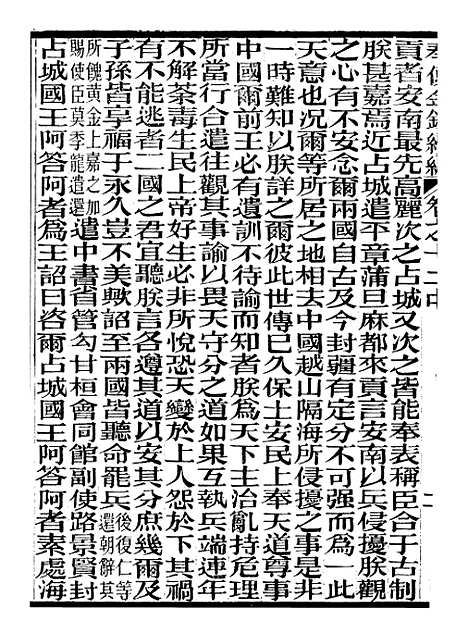 奉使金鑑續編 卷之十二中 二
貢者安南最先高麗次之占城又次之皆能奉表稱臣合于古制
朕甚嘉焉近占城遣平章蒲旦麻都來貢言安南以兵侵擾朕觀
之心有不安念爾兩國自古及今封疆有定分不可强而為一此
天意也況爾等所居之地相去中國越山隔海所侵擾之事是非
一時難知以朕詳之爾彼此世傳巳久保土安民上奉天道尊事
中國爾前王必有遺訓不待諭而知者朕為天下主治亂持危理
所當行合遣往觀其事諭以畏天守分之道如果互執兵端連年
不解荼毒生民上帝好生必非所悅恐天變於上人怨於下其禍
有不能逃者二國之君宜聽朕言各遵其道以安其分庶幾爾及
子孫皆享福于永久豈不美歟詔至兩國皆聽命罷兵後復仁等還朝辭莫
所餽黃金上嘉之加賜使臣莫季龍遣還遣中書省管勾甘桓會同館副使路景賢封
占城國王阿答阿者為王詔曰咨爾占城國王阿答阿者素處海